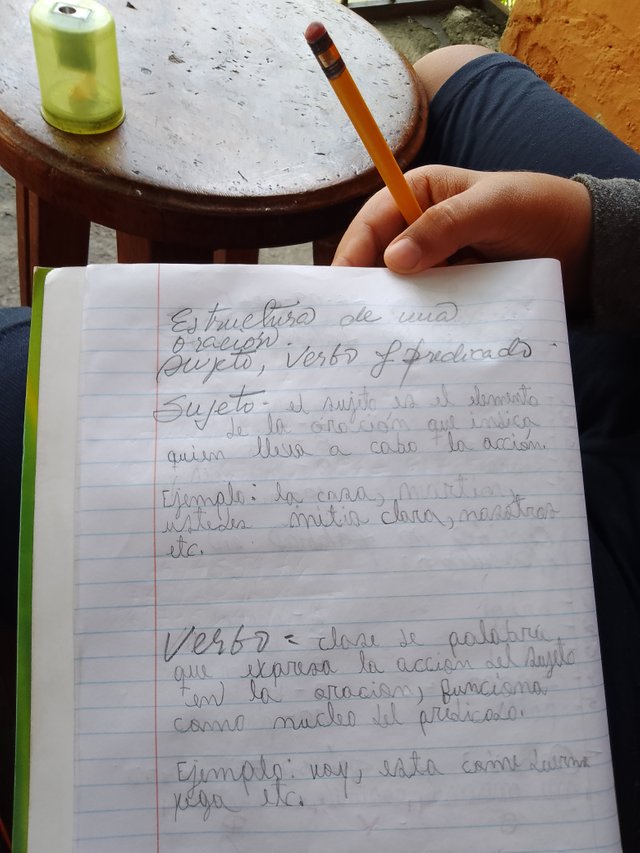 Estructura de una
oración.
Sujeto, Verbo y predicado.
Sujeto- el sujeto es el elemento
de la oración que indica
quien lleva a cabo la acción.
Ejemplo: la casa, martin,
ustedes mitis clara, nosotros
etc.
Verbo = clase de palabra
que expresa la acción del sujeto
en la oración, funciona
como nucleo del predicado.
Ejemplo: voy, esta come duerme
etc.